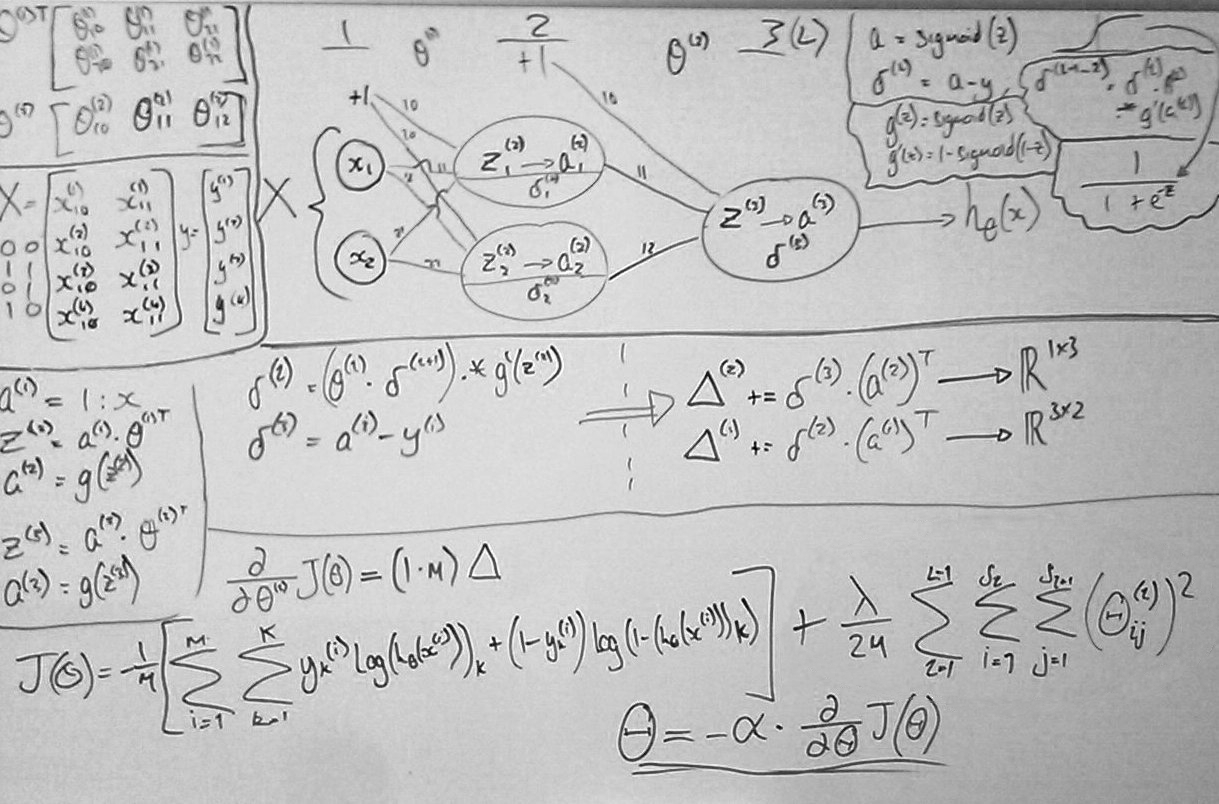 Θ⁽¹⁾ᵀ [ θ₁₀⁽¹⁾ θ₁₁⁽¹⁾ θ₂₁⁽¹⁾
θ₂₀⁽¹⁾ θ₂₁⁽¹⁾ θ₂₂⁽¹⁾ ]
[ θ₁₀⁽²⁾ θ₁₁⁽²⁾ θ₁₂⁽²⁾ ]
X =
0 0
1 1
0 1
1 0
[ x₁₀⁽¹⁾ x₁₁⁽¹⁾
x₁₀⁽²⁾ x₁₁⁽²⁾
x₁₀⁽³⁾ x₁₁⁽³⁾
x₁₀⁽⁴⁾ x₁₁⁽⁴⁾ ]
y = [ y⁽¹⁾
y⁽²⁾
y⁽³⁾
y⁽⁴⁾ ]
1 θ⁽¹⁾ 2 θ⁽²⁾ 3(L)
+1
+1
10
10
10
X {
x₁
x₂
11
12
21
22
z₁⁽²⁾ → a₁⁽²⁾
δ₁⁽²⁾
z₂⁽²⁾ → a₂⁽²⁾
δ₂⁽²⁾
11
12
z⁽³⁾ → a⁽³⁾
δ⁽³⁾
→ hθ(x)
a = sigmoid(z)
δ⁽ᴸ⁾ = a - y
g(z) = sigmoid(z)
g'(z) = 1 - sigmoid(1-z)
.* g'(a⁽ᶻ⁾)
1
1 + e⁻ᶻ
a⁽¹⁾ = 1 : x
z⁽²⁾ = a⁽¹⁾ · θ⁽¹⁾ᵀ
a⁽²⁾ = g(z⁽²⁾)
z⁽³⁾ = a⁽²⁾ · θ⁽²⁾ᵀ
a⁽³⁾ = g(z⁽³⁾)
δ⁽ˡ⁾ = (θ⁽ˡ⁾ · δ⁽ˡ⁺¹⁾) .* g'(z⁽ˡ⁾)
δ⁽³⁾ = a⁽³⁾ - y⁽ⁱ⁾
⇒ Δ⁽²⁾ += δ⁽³⁾ · (a⁽²⁾)ᵀ → ℝ¹ˣ³
Δ⁽¹⁾ += δ⁽²⁾ · (a⁽¹⁾)ᵀ → ℝ³ˣ²
∂/∂θ⁽ˡ⁾ J(θ) = (1·M) Δ
J(θ) = -1/M [ ∑ᵢ₌₁ᴹ ∑ₖ₌₁ᴷ yₖ⁽ⁱ⁾ log(hθ(x⁽ⁱ⁾))ₖ + (1-yₖ⁽ⁱ⁾) log(1-(hθ(x⁽ⁱ⁾))k) ] + λ/2M ∑ₗ₌₁ᴸ⁻¹ ∑ᵢ₌₁^(Sₗ) ∑ⱼ₌₁^(Sₗ₊₁) (Θᵢⱼ⁽ˡ⁾)²
Θ = -α · ∂/∂Θ J(Θ)